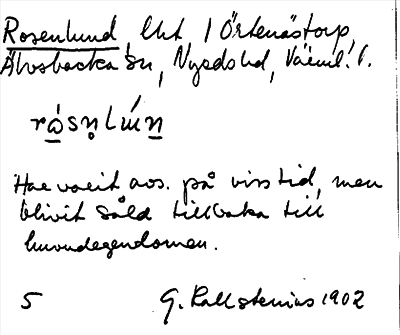 Rosenlund, lht 1 Örtenästorp,
Älvsbacka sn, Nyeds hd, Värml. l.
rọ́sn̥lún
Har varit avs. på viss tid, men
blivit såld tillbaka till
huvudegendomen.
5 G. Kallstenius 1902